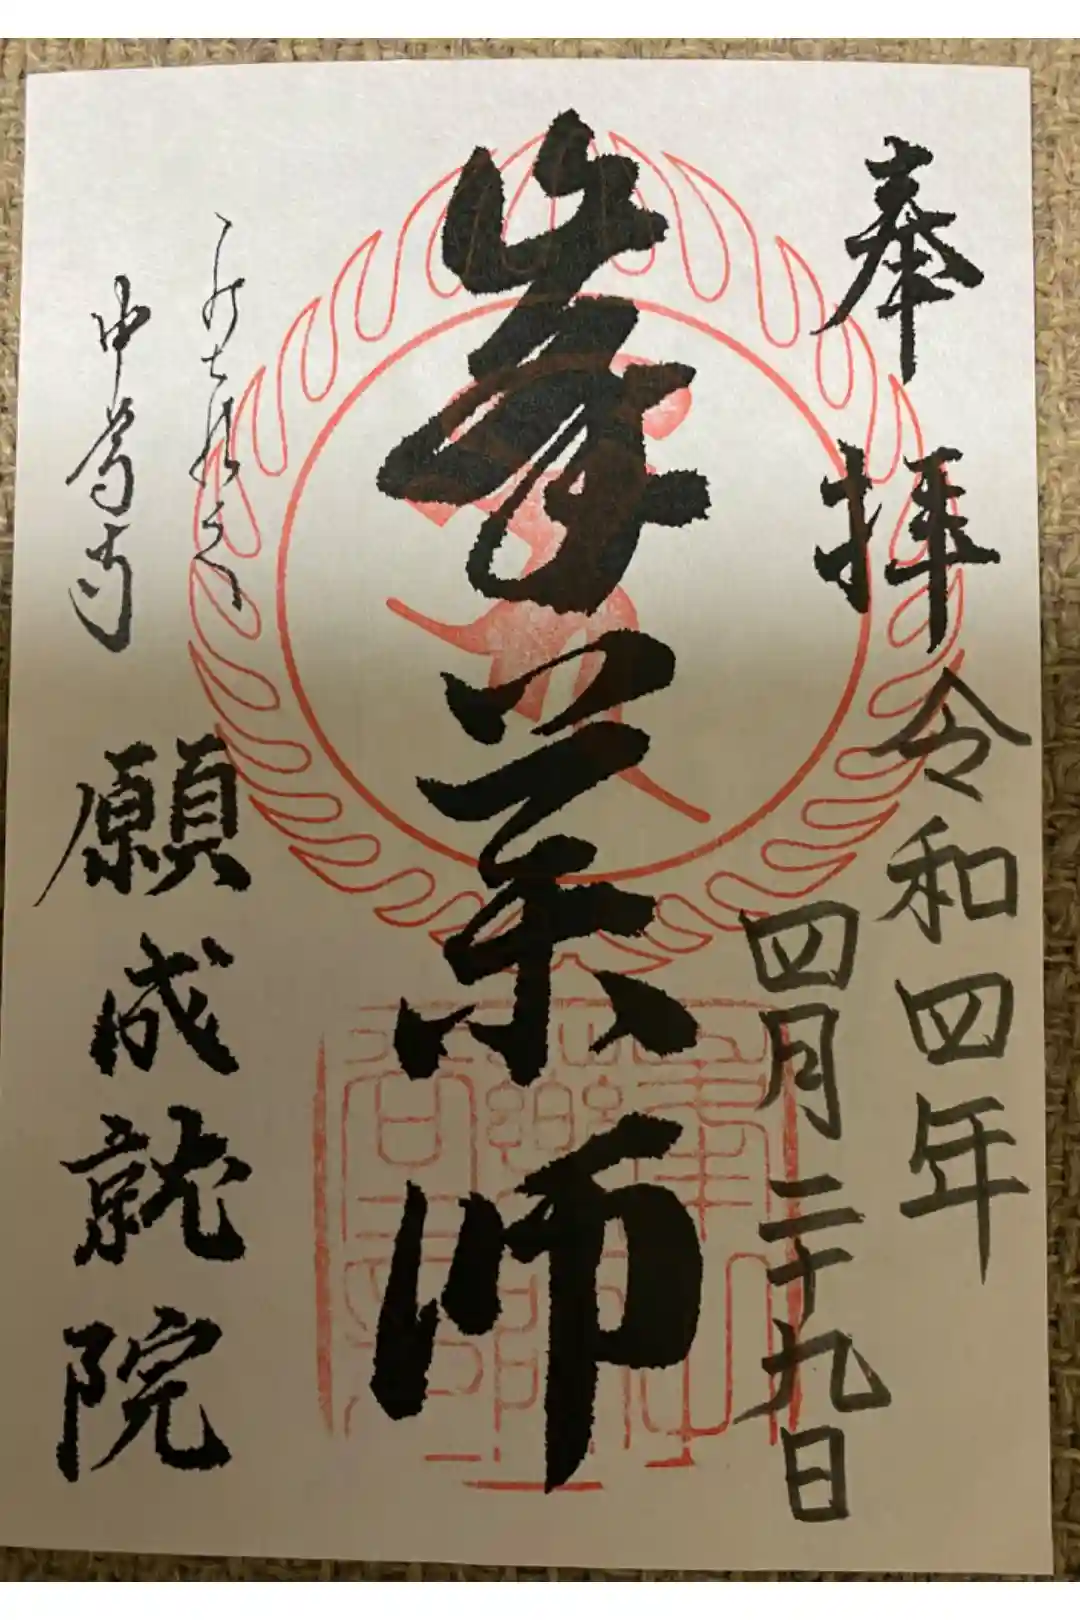 奉拝 令和四年
四月二十九日
峯薬師
中尊寺 願成就院